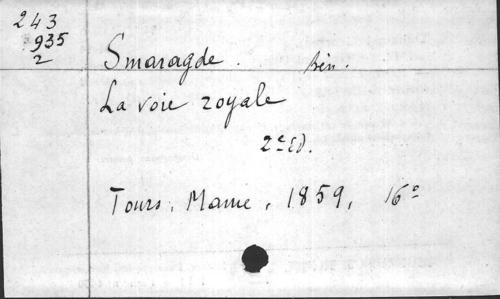 243
935
2
Smaragde. bén.
La voie royale
2e Ed.
Tours, Mame, 1859, 16°